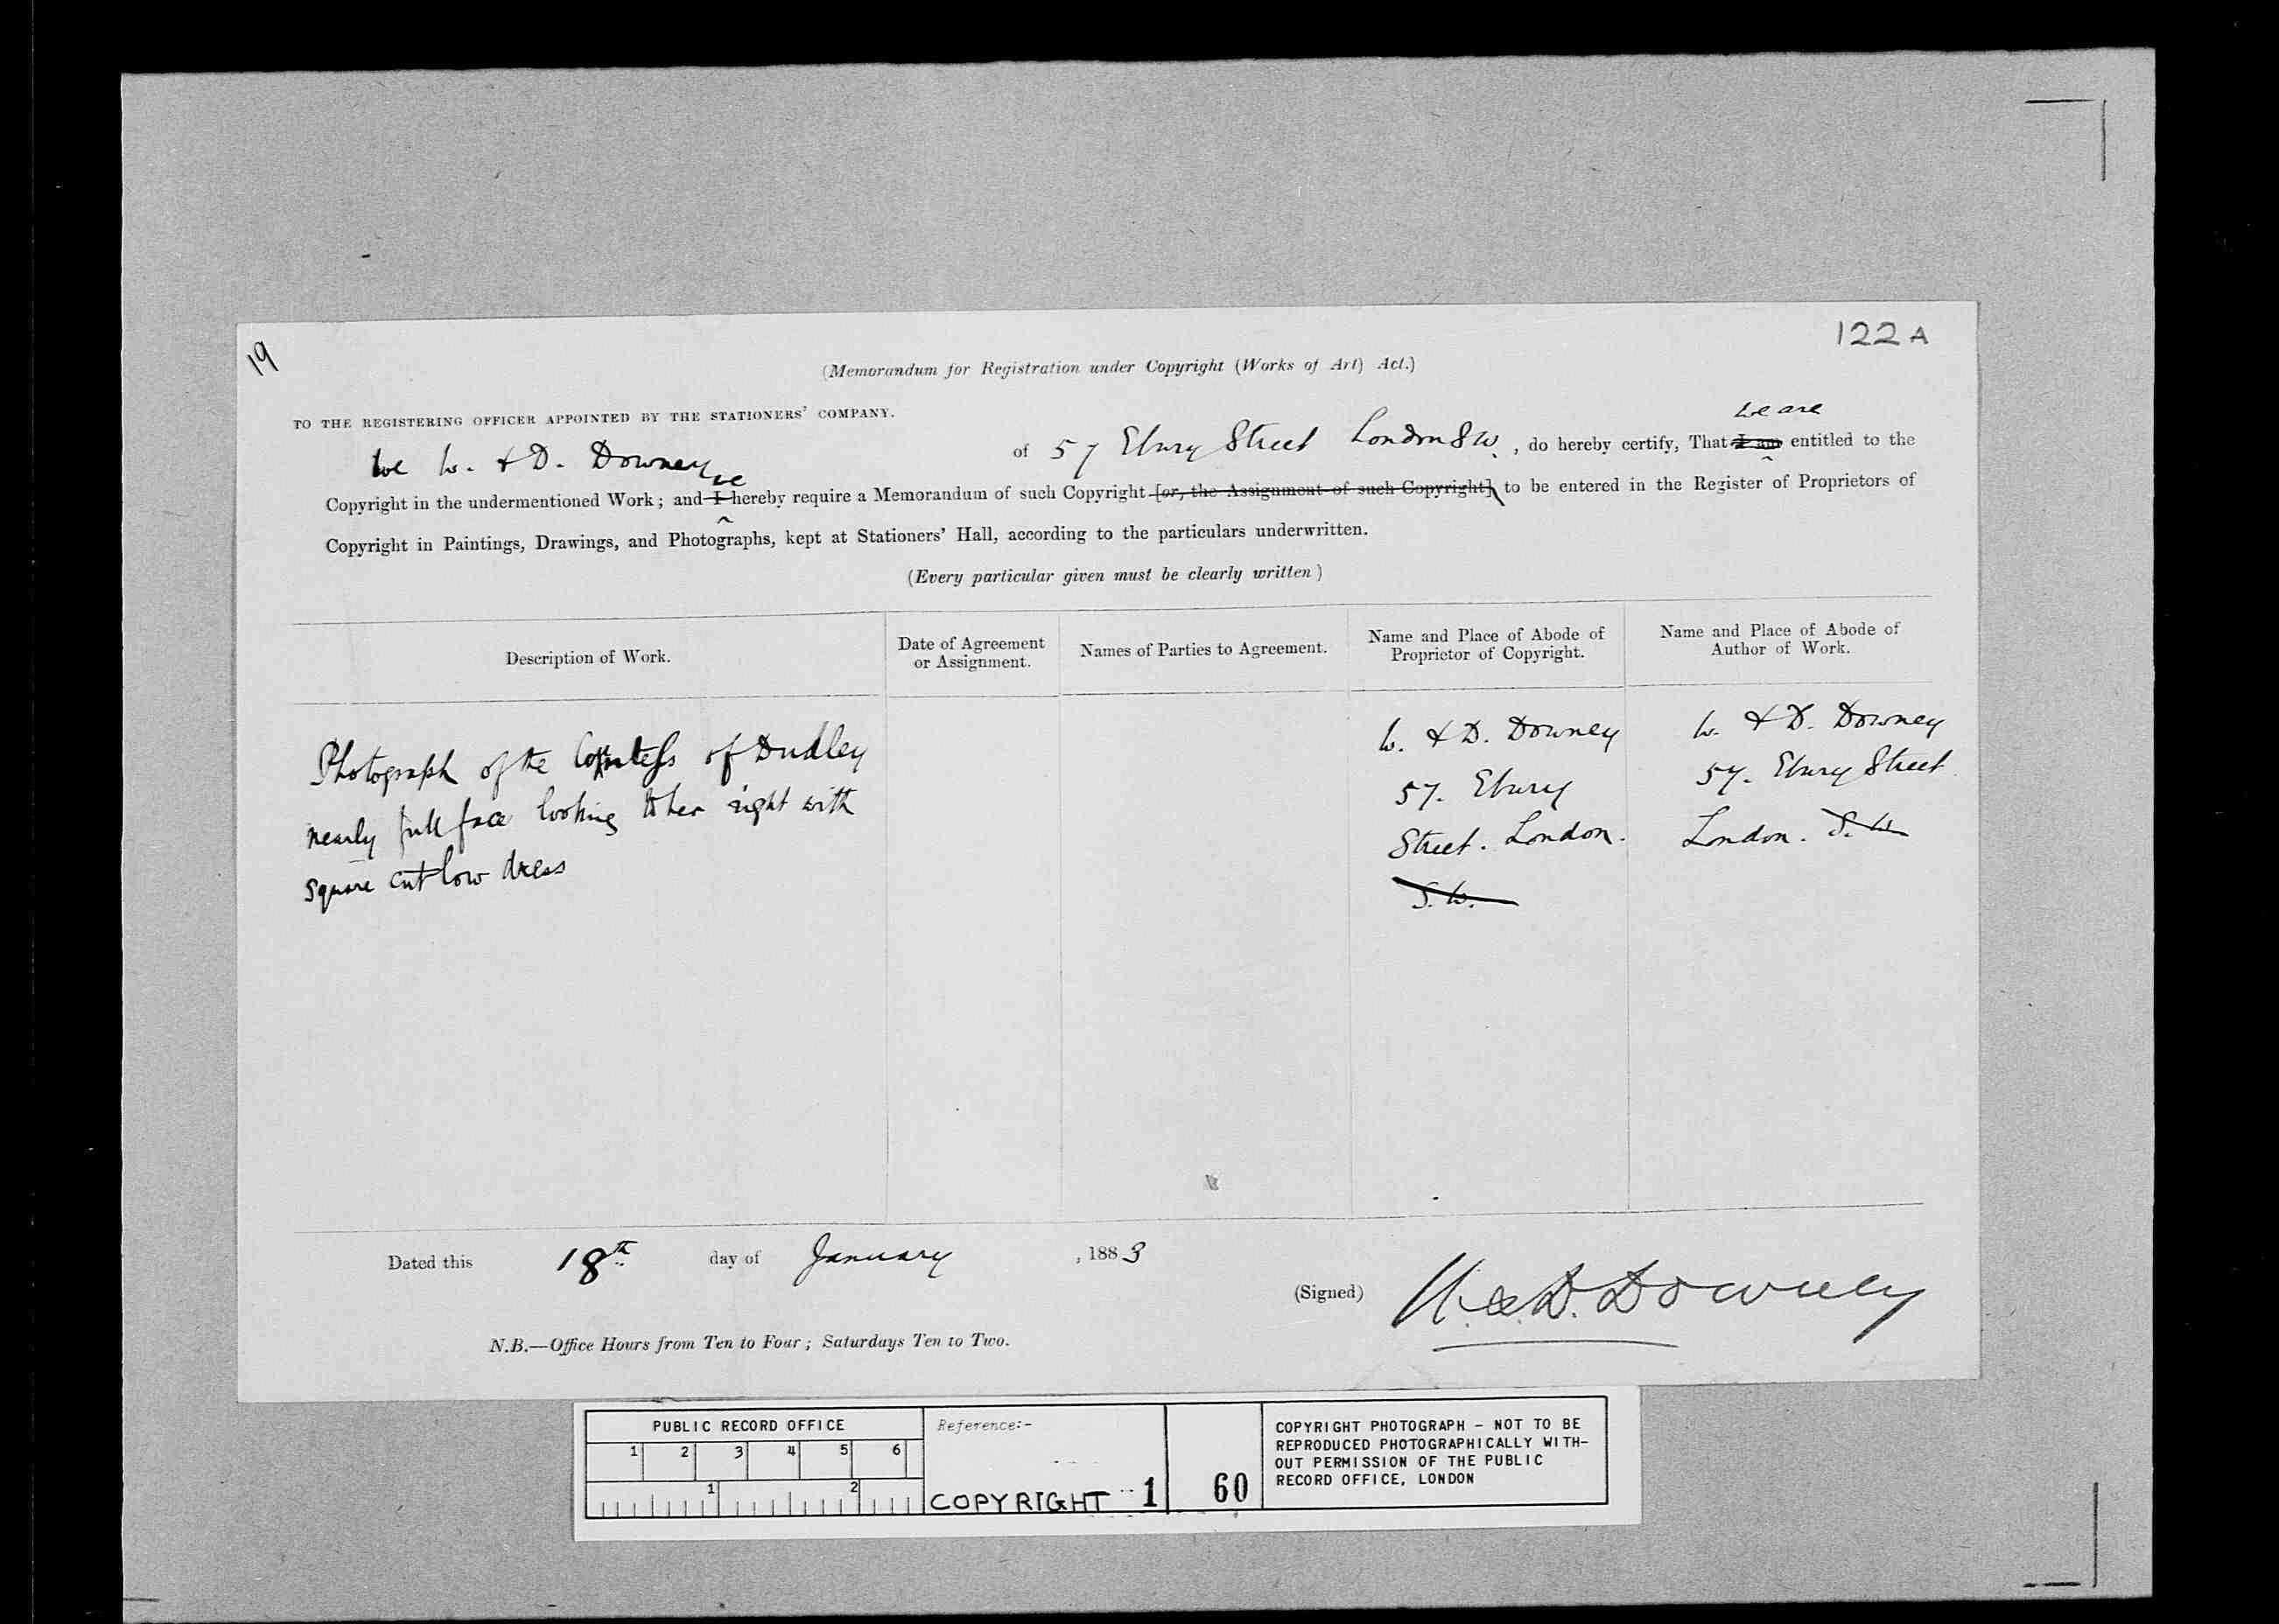 19
122 A
(Memorandum for Registration under Copyright (Works of Art) Act.)
TO THE REGISTERING OFFICER APPOINTED BY THE STATIONERS' COMPANY.
We W. & D. Downey of 57 Ebury Street London S W. , do hereby certify, That I am we are entitled to the
Copyright in the undermentioned Work; and I we hereby require a Memorandum of such Copyright [or, the Assignment of such Copyright] to be entered in the Register of Proprietors of
Copyright in Paintings, Drawings, and Photographs, kept at Stationers' Hall, according to the particulars underwritten.
(Every particular given must be clearly written)
Description of Work.
Date of Agreement
or Assignment.
Names of Parties to Agreement.
Name and Place of Abode of
Proprietor of Copyright.
Name and Place of Abode of
Author of Work.
Photograph of the Countess of Dudley
nearly full face looking to her right with
square cut low dress
W. & D. Downey
57. Ebury
Street. London.
S. W.
W. & D. Downey
57. Ebury Street
London. S. W.
Dated this 18th day of January , 1883
(Signed) W. & D. Downey
N.B.—Office Hours from Ten to Four; Saturdays Ten to Two.
PUBLIC RECORD OFFICE
1 2 3 4 5 6
1 2
Reference:-
COPYRIGHT 1
60
COPYRIGHT PHOTOGRAPH - NOT TO BE
REPRODUCED PHOTOGRAPHICALLY WITH-
OUT PERMISSION OF THE PUBLIC
RECORD OFFICE, LONDON